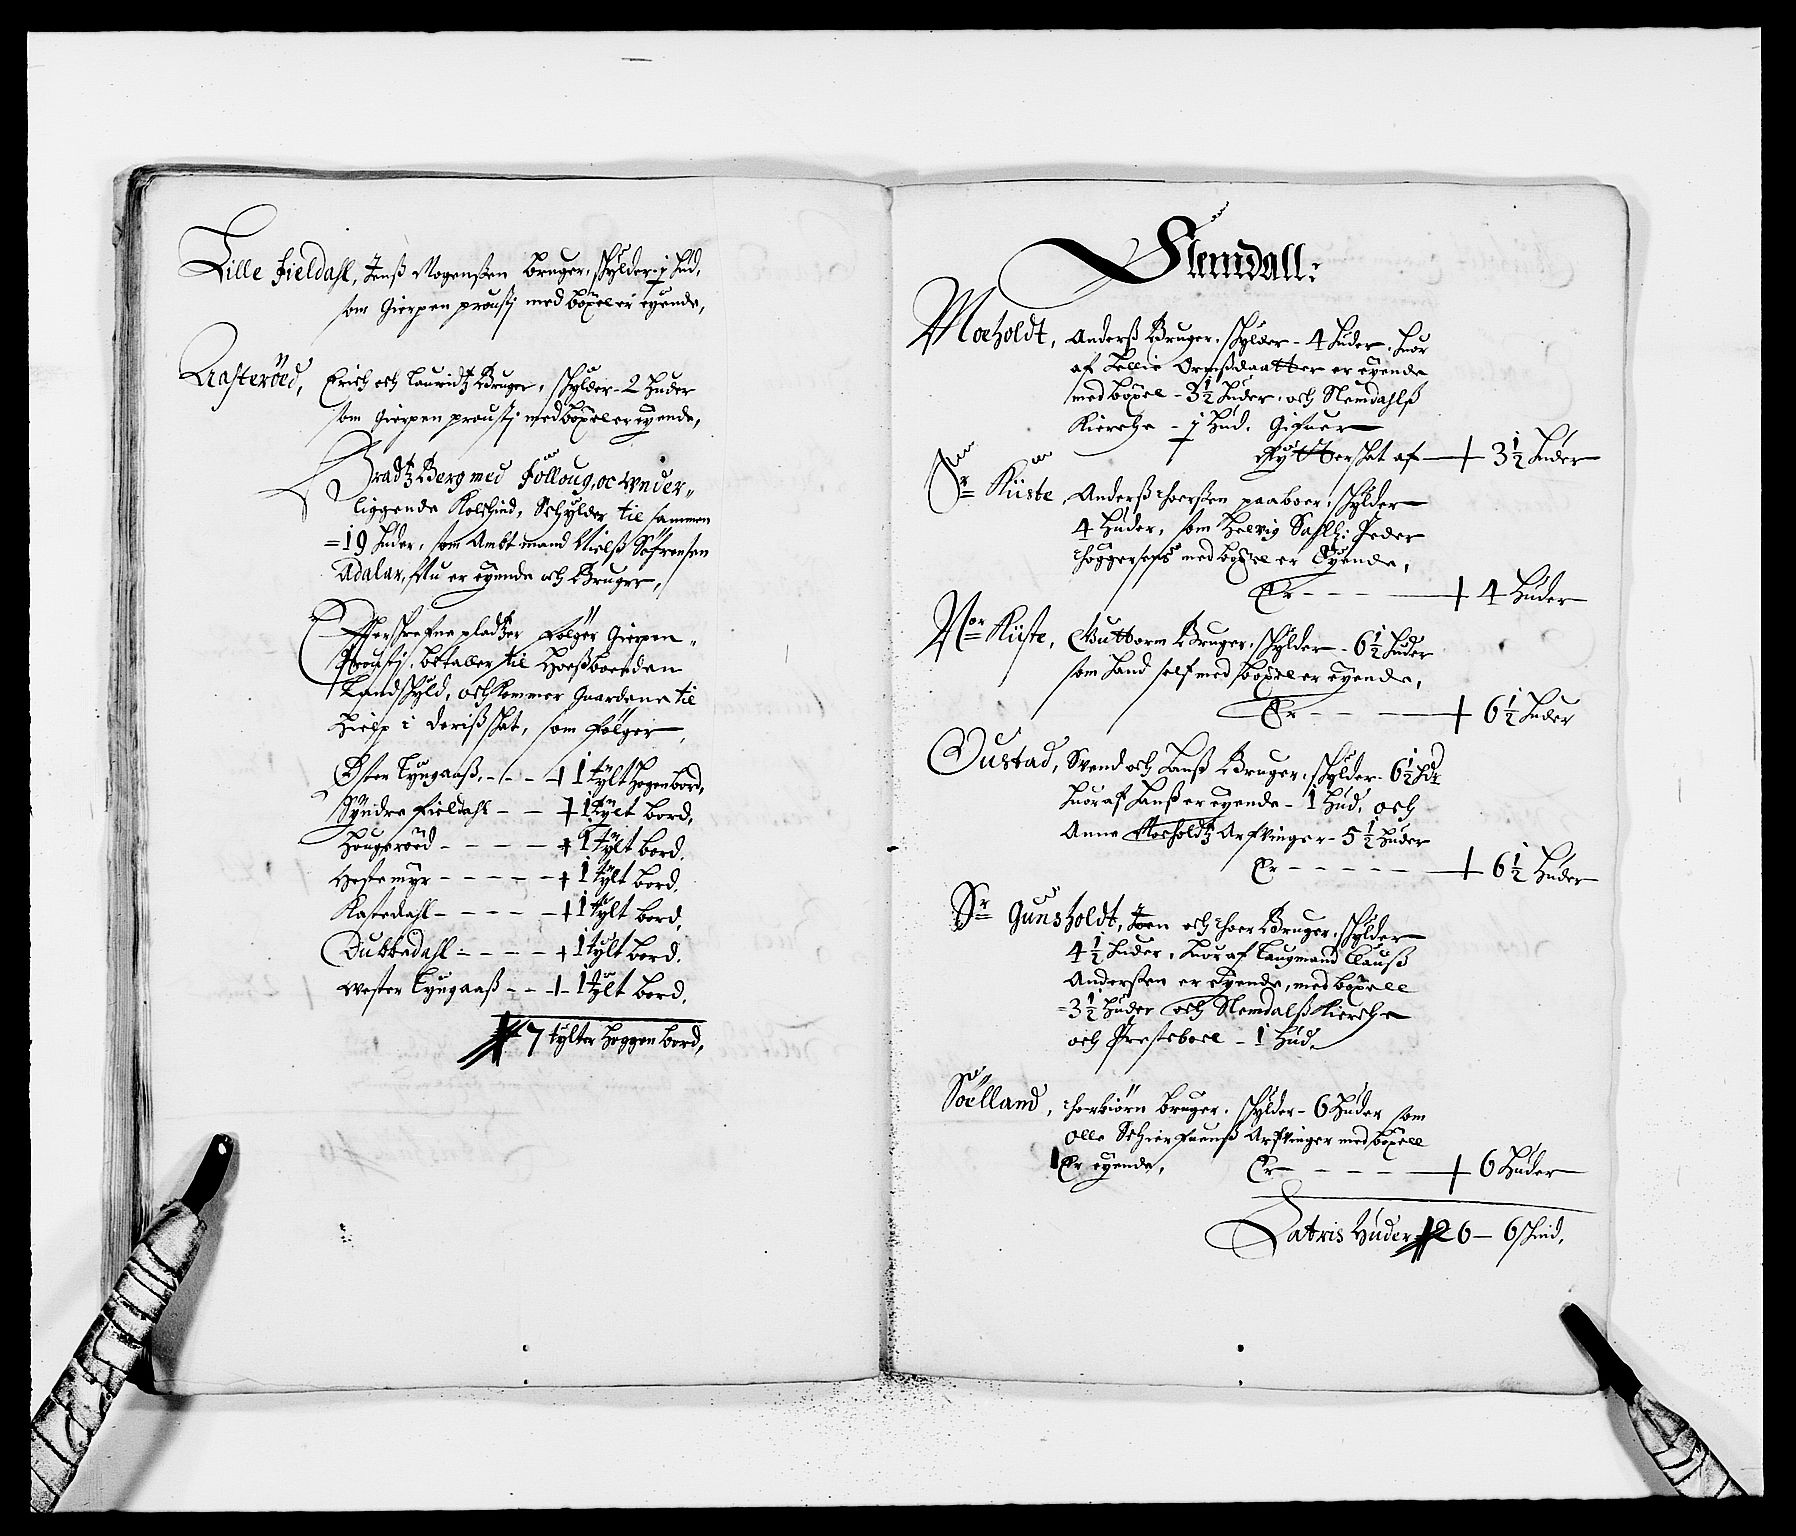 Lille Fieldahl, Jenß Mogenßen Bruger, skylder 1 Hud,
som Gierpen proustj med böxel er eyende,
Aasteröed, Erich och Lauridtz Bruger, skylder - 2 Huder
som Gierpen proustj med böxel er eyende,
Bradtz Berg med Følloug, oc under„
liggende Kolschind, Schylder til sammen
=19 Huder, som Ambtmand Nielß Söfrensen
Adalar, Nu er eyende och Bruger,
Effterskrefne pladtzer Følger Gierpen„
Proustj, betaller til Hoeßboerden
Landskyld, och kommer Gaardene til
Hielp i deriß skat, som Følger,
Öster Lyngaaß, - - - + 1 tylt Hogenbord,
Syndre Fieldahl - - + 1 tylt bord,
Hougeröed - - - - - + 1 tylt bord.
Hestemyr - - - - - + 1 tylt bord.
Kastedahl - - - - - + 1 tylt bord,
Dubbedahl - - - - + 1 tylt bord.
Wester Lyngaaß - - + 1 tylt bord.
7 tylter Hoggen bord,
Slemdall:
Moeholdt, Anderß Bruger, skylder - 4 Huder, huor
af Lellie Ormßdaatter er eyende
med böxel - 3 1/2 Huder, och Slemdahlß
Kierche - 1 Hud. Gifuer
Rytterskat af + 3 1/2 Huder
Sr Kiiste Anderß Thoerßen paaboer, skylder
4 Huder, som Helvig Sahl: Peder
Thoggersens med böxel er Eyende,
Er - - - + 4 Huder
Nor Kiiste, Guttorm Bruger, skylder - 6 1/2 Huder
som Hand self med böxel er eyende,
Er - - - + 6 1/2 Huder
Oustad, Svend och Hanß Bruger, skylder - 6 1/2 Hdr
huoraf Hanß er eyende - 1 Hud, och
Anne Moeholdtz Arfvinger - 5 1/2 Huder
Er - - - - - + 6 1/2 Huder
Sr Gunsholdt, Joen och Thoer Bruger, skylder
4 1/2 Huder, huoraf Laugmand Clauß
Anderßen er eyende, med böxell
=3 1/2 Huder och Slemdalß Kierche
och Presteboel - 1 Hud.
Söelland, Thorbiörn bruger, skylder - 6 Huder som
Olle Arfvinger med böxell
Er eyende, Er - - - - + 6 Huder
Latris Huder 26 - 6 skind,